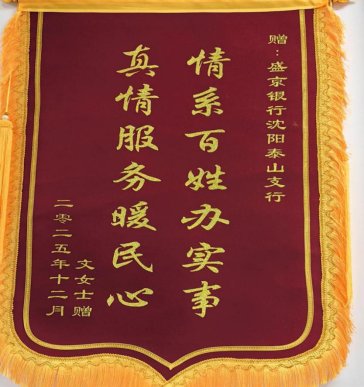 赠：盛京银行沈阳泰山支行
情系百姓办实事
真情服务暖民心
文女士赠
二零二五年十二月